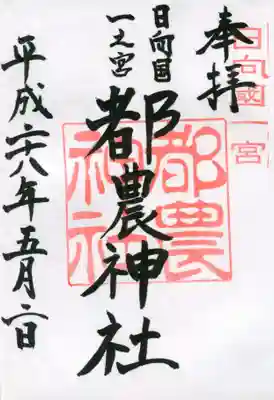 日向國一宮
奉拝
日向国
一之宮
都農神社
都農神社
平成二十八年五月二日